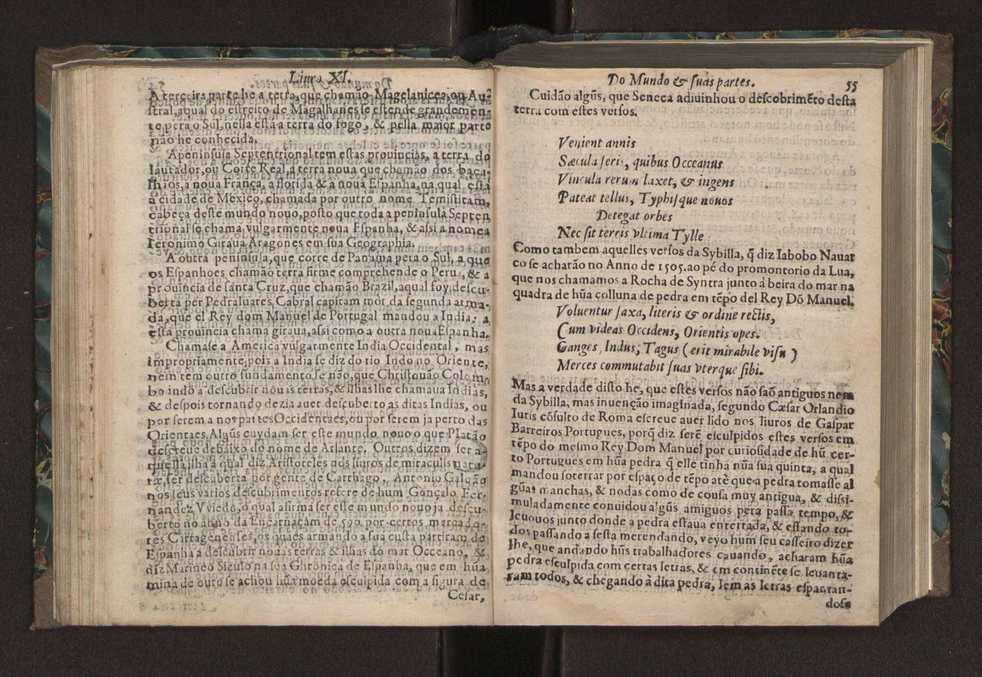 Liuro XI.
A terceira parte he a terra, que chamão Magelanica, ou Au-
stral, a qual do estreito de Magalhães se estende grandemen-
te pera o Sul, nella está a terra do fogo, & pella maior parte
não he conhecida.
A peninsula Septentrional tem estas prouincias, a terra do
lautador, ou Corte Real, a terra noua que chamão dos baca-
lháos, a noua França, a florida & a noua Espanha, na qual está
a cidade de Mexico, chamada por outro nome Temistitam,
cabeça deste mundo nouo, posto que toda a peninsula Septen
trional se chama vulgarmente noua Espanha, & assi a nomea
Ieronimo Giraua Aragones em sua Geographia.
A outra peninsula, que corre de Panama pera o Sul, a que
os Espanhoes chamão terra firme comprehende o Peru, & a
prouincia de santa Cruz, que chamão Brazil, a qual foy descu-
berta per Pedraluares Cabral capitam mór da segunda arma-
da, que el Rey dom Manuel de Portugal mandou a India: a
esta prouincia chama giraua, assi como a outra noua Espanha.
Chamase a America vulgarmente India Occidental, mas
impropriamente, pois a India se diz do rio Indo no Oriente,
nem tem outro fundamento se não, que Christouão Colom-
bo indo a descubrir nouas terras, & ilhas lhe chamaua Indias,
& despois tornando dezia auer descuberto as ditas Indias, ou
por serem a nos partes Occidentaes, ou por serem ja perto das
Orientaes. Algũs cuydam ser este mundo nouo o que Platão
descreue debaixo do nome de Atlante. Outros dizem ser a-
quella ilha a qual diz Aristoteles nos liuros de miraculis natu-
ræ, ser descuberta por gente de Carthago, Antonio Galuão
nos seus varios descubrimentos refere de hum Gonçalo Fer-
nandez Viedo, o qual afirma ser este mundo nouo ja descu-
berto no anno da Encarnaçam de 590. por certos mercado-
res Cartagenenses, os quaes armando a sua custa partiram de
Espanha a descubrir nouas terras & ilhas do mar Occeano, &
diz Marineo Siculo na sua Chronica de Espanha, que em hũa
mina de ouro se achou hũa moeda esculpida com a figura de
Cesar,
Do Mundo & suas partes. 55
Cuidão algũs, que Seneca adiuinhou o descobrimẽto desta
terra com estes versos.
Venient annis
Sæcula seris, quibus Occeanus
Vincula rerum laxet, & ingens
Pateat tellus, Typhisque nouos
Detegat orbes
Nec sit terris vltima Tylle
Como tambem aquelles versos da Sybilla, q̃ diz Iabobo Nauar
co se acharão no Anno de 1505. ao pé do promontorio da Lua,
que nos chamamos a Rocha de Syntra junto á beira do mar na
quadra de hũa colluna de pedra em tẽpo del Rey Dõ Manuel.
Voluentur saxa, literis & ordine rectis,
Cum videas Occidens, Orientis opes.
Ganges, Indus, Tagus (erit mirabile visu)
Merces commutabit suas vterque sibi.
Mas a verdade disto he, que estes versos não saõ antiguos nem
da Sybilla, mas inuenção imaginada, segundo Cæsar Orlandio
Iuris cõsulto de Roma escreue auer lido nos liuros de Gaspar
Barreiros Portugues, porq̃ diz serẽ esculpidos estes versos em
tẽpo do mesmo Rey Dom Manuel por curiosidade de hũ cer-
to Portugues em hũa pedra q̃ elle tinha nũa sua quinta, a qual
mandou soterrar por espaço de tẽpo até que a pedra tomasse al
gũas manchas, & nodas como de cousa muy antigua, & dissi-
muladamente conuidou algũs amiguos pera passa tempo, &
leuouos junto donde a pedra estaua enterrada, & estando to-
dos passando a sesta merendando, veyo hum seu casseiro dizer
lhe, que andando hũs trabalhadores cauando, acharam hũa
pedra esculpida com certas letras, & em continẽte se leuanta-
ram todos, & chegando á dita pedra, lem as letras espantan-
dose